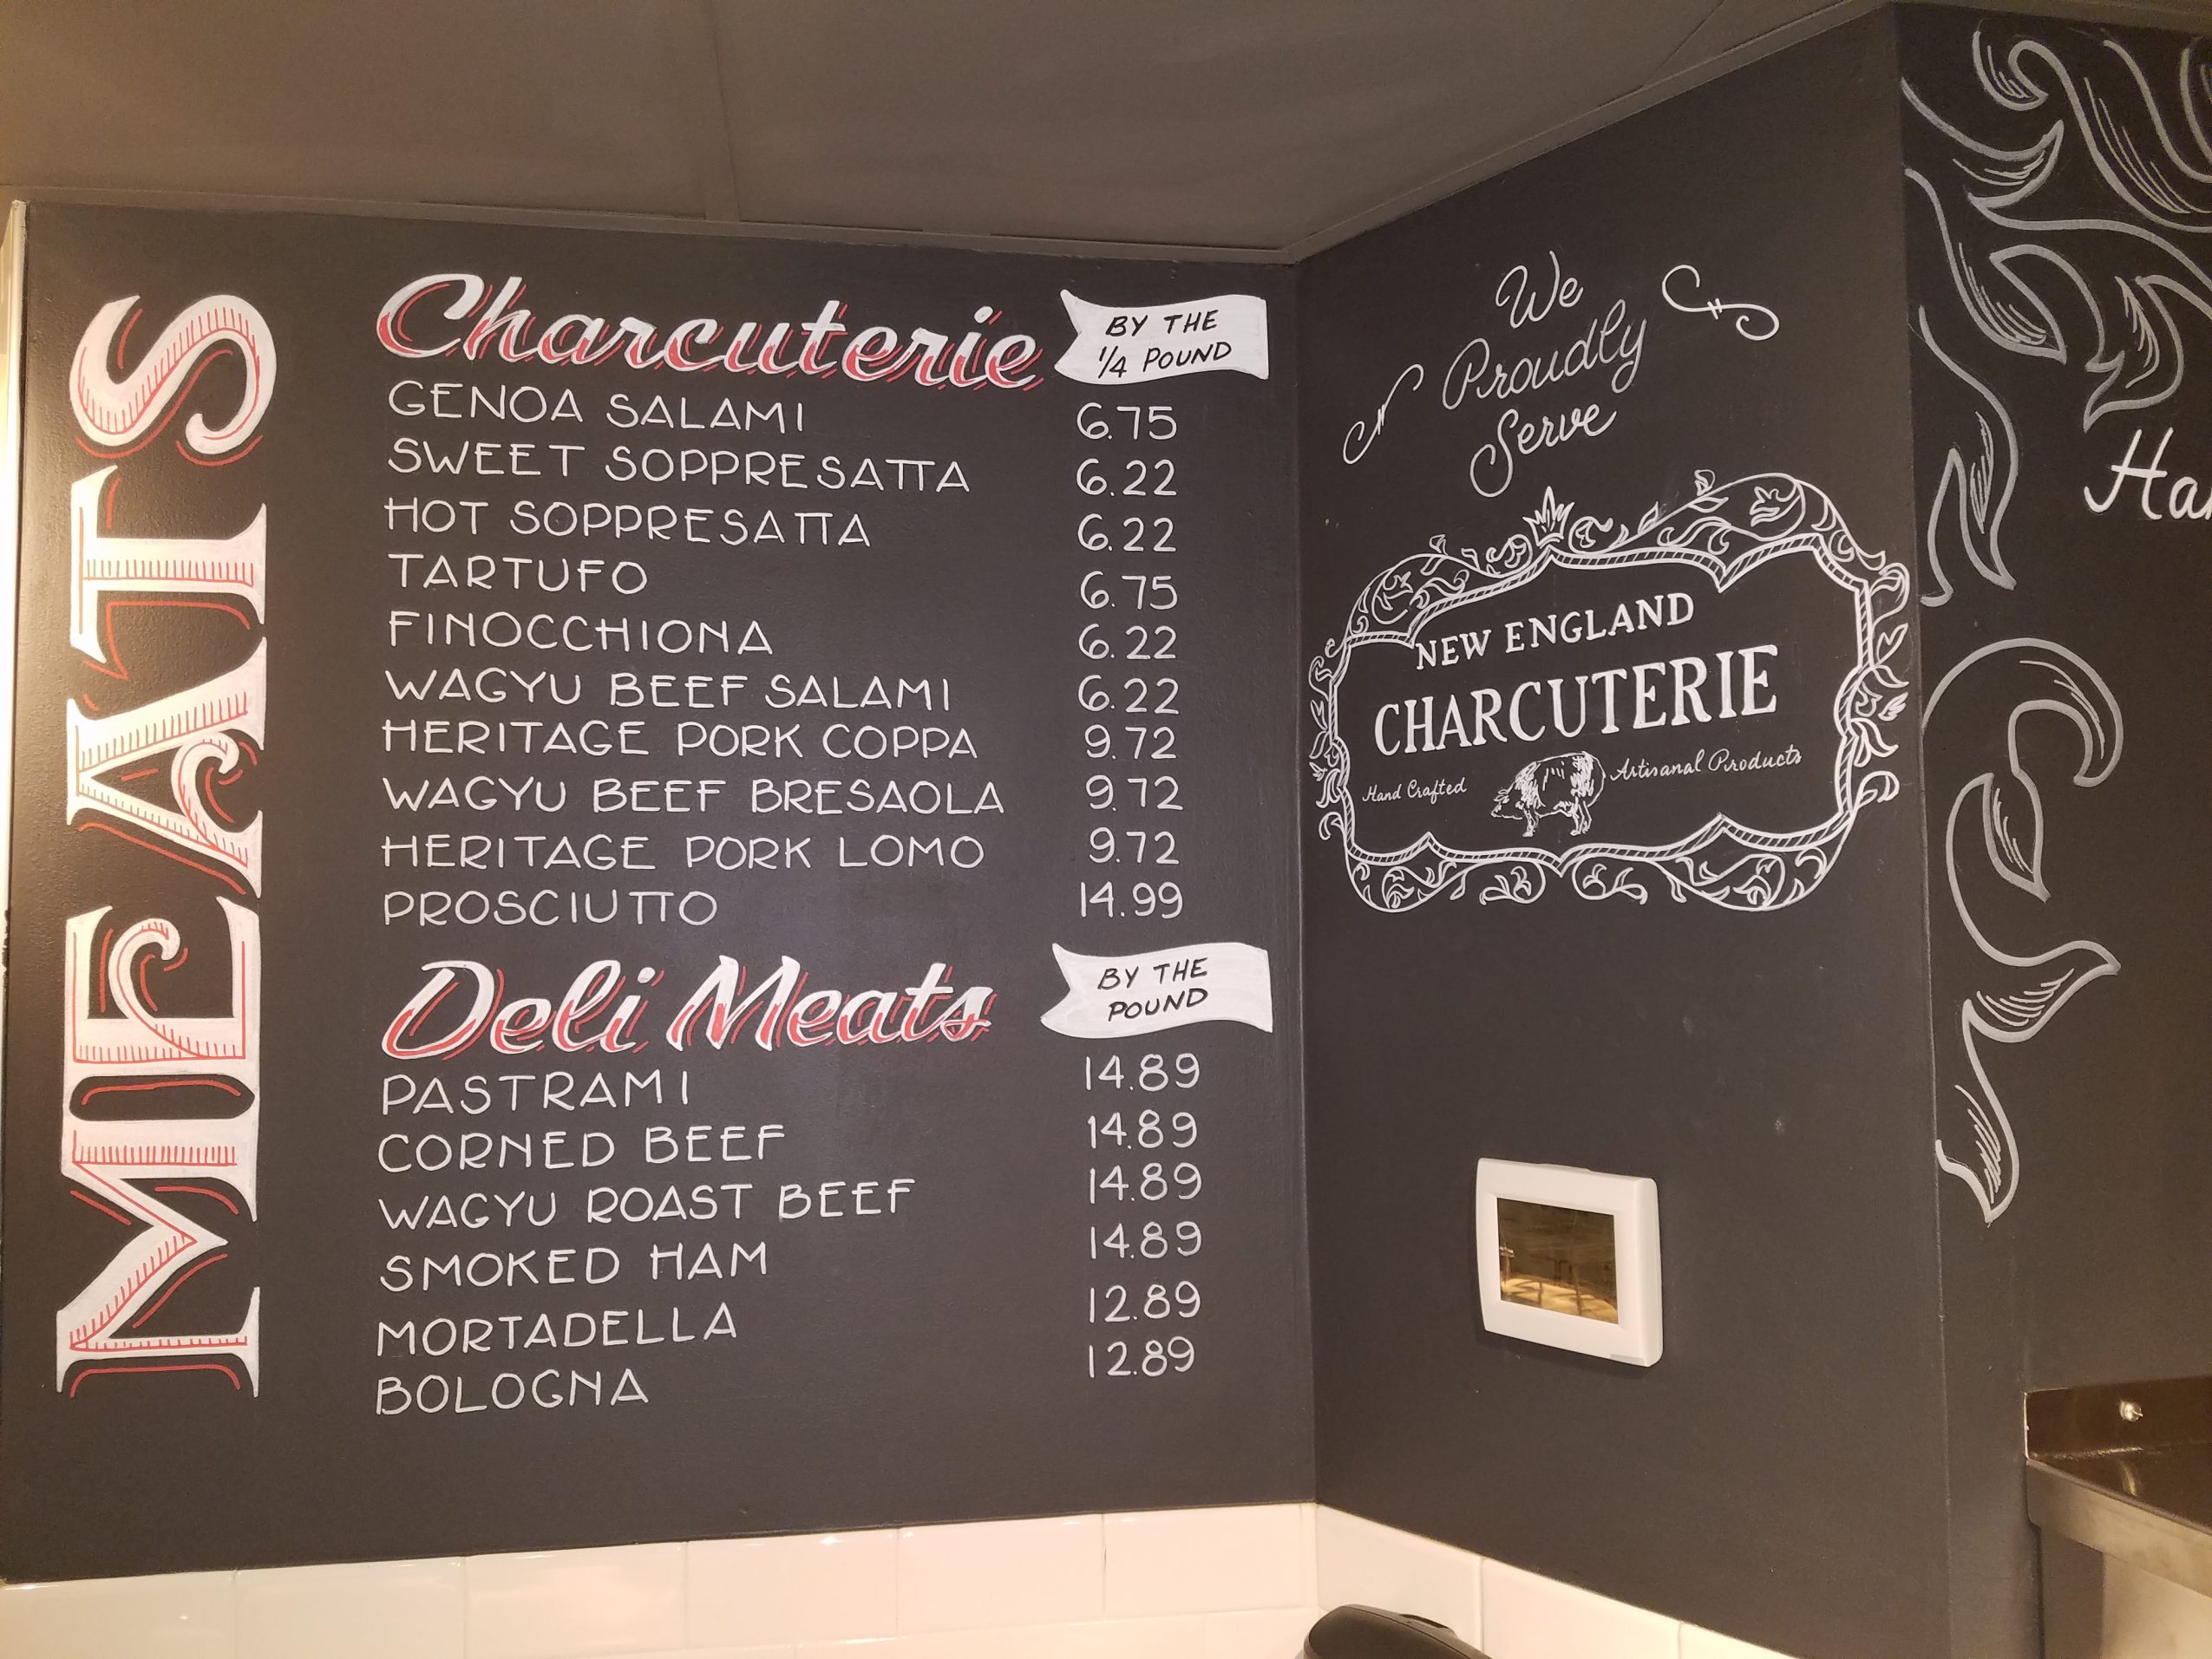 MEATS
Charcuterie
BY THE
1/4 POUND
GENOA SALAMI 6.75
SWEET SOPPRESATTA 6.22
HOT SOPPRESATTA 6.22
TARTUFO 6.75
FINOCCHIONA 6.22
WAGYU BEEF SALAMI 6.22
HERITAGE PORK COPPA 9.72
WAGYU BEEF BRESAOLA 9.72
HERITAGE PORK LOMO 9.72
PROSCIUTTO 14.99
Deli Meats
BY THE
POUND
PASTRAMI 14.89
CORNED BEEF 14.89
WAGYU ROAST BEEF 14.89
SMOKED HAM 14.89
MORTADELLA 12.89
BOLOGNA 12.89
We
Proudly
Serve
NEW ENGLAND
CHARCUTERIE
Hand Crafted Artisanal Products